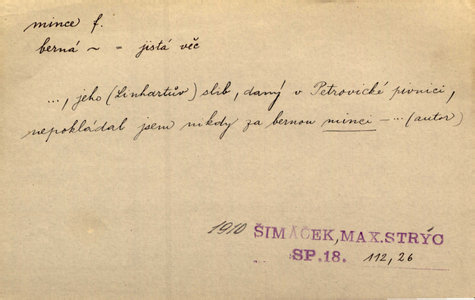 mince f.
berná ~ = jistá věc
..., jeho (Linhartův) slib, daný v Petrovické pivnici,
nepokládal jsem nikdy za bernou minci – ... (autor)
1910 ŠIMÁČEK, MAX. STRÝC
SP. 18. 112, 26